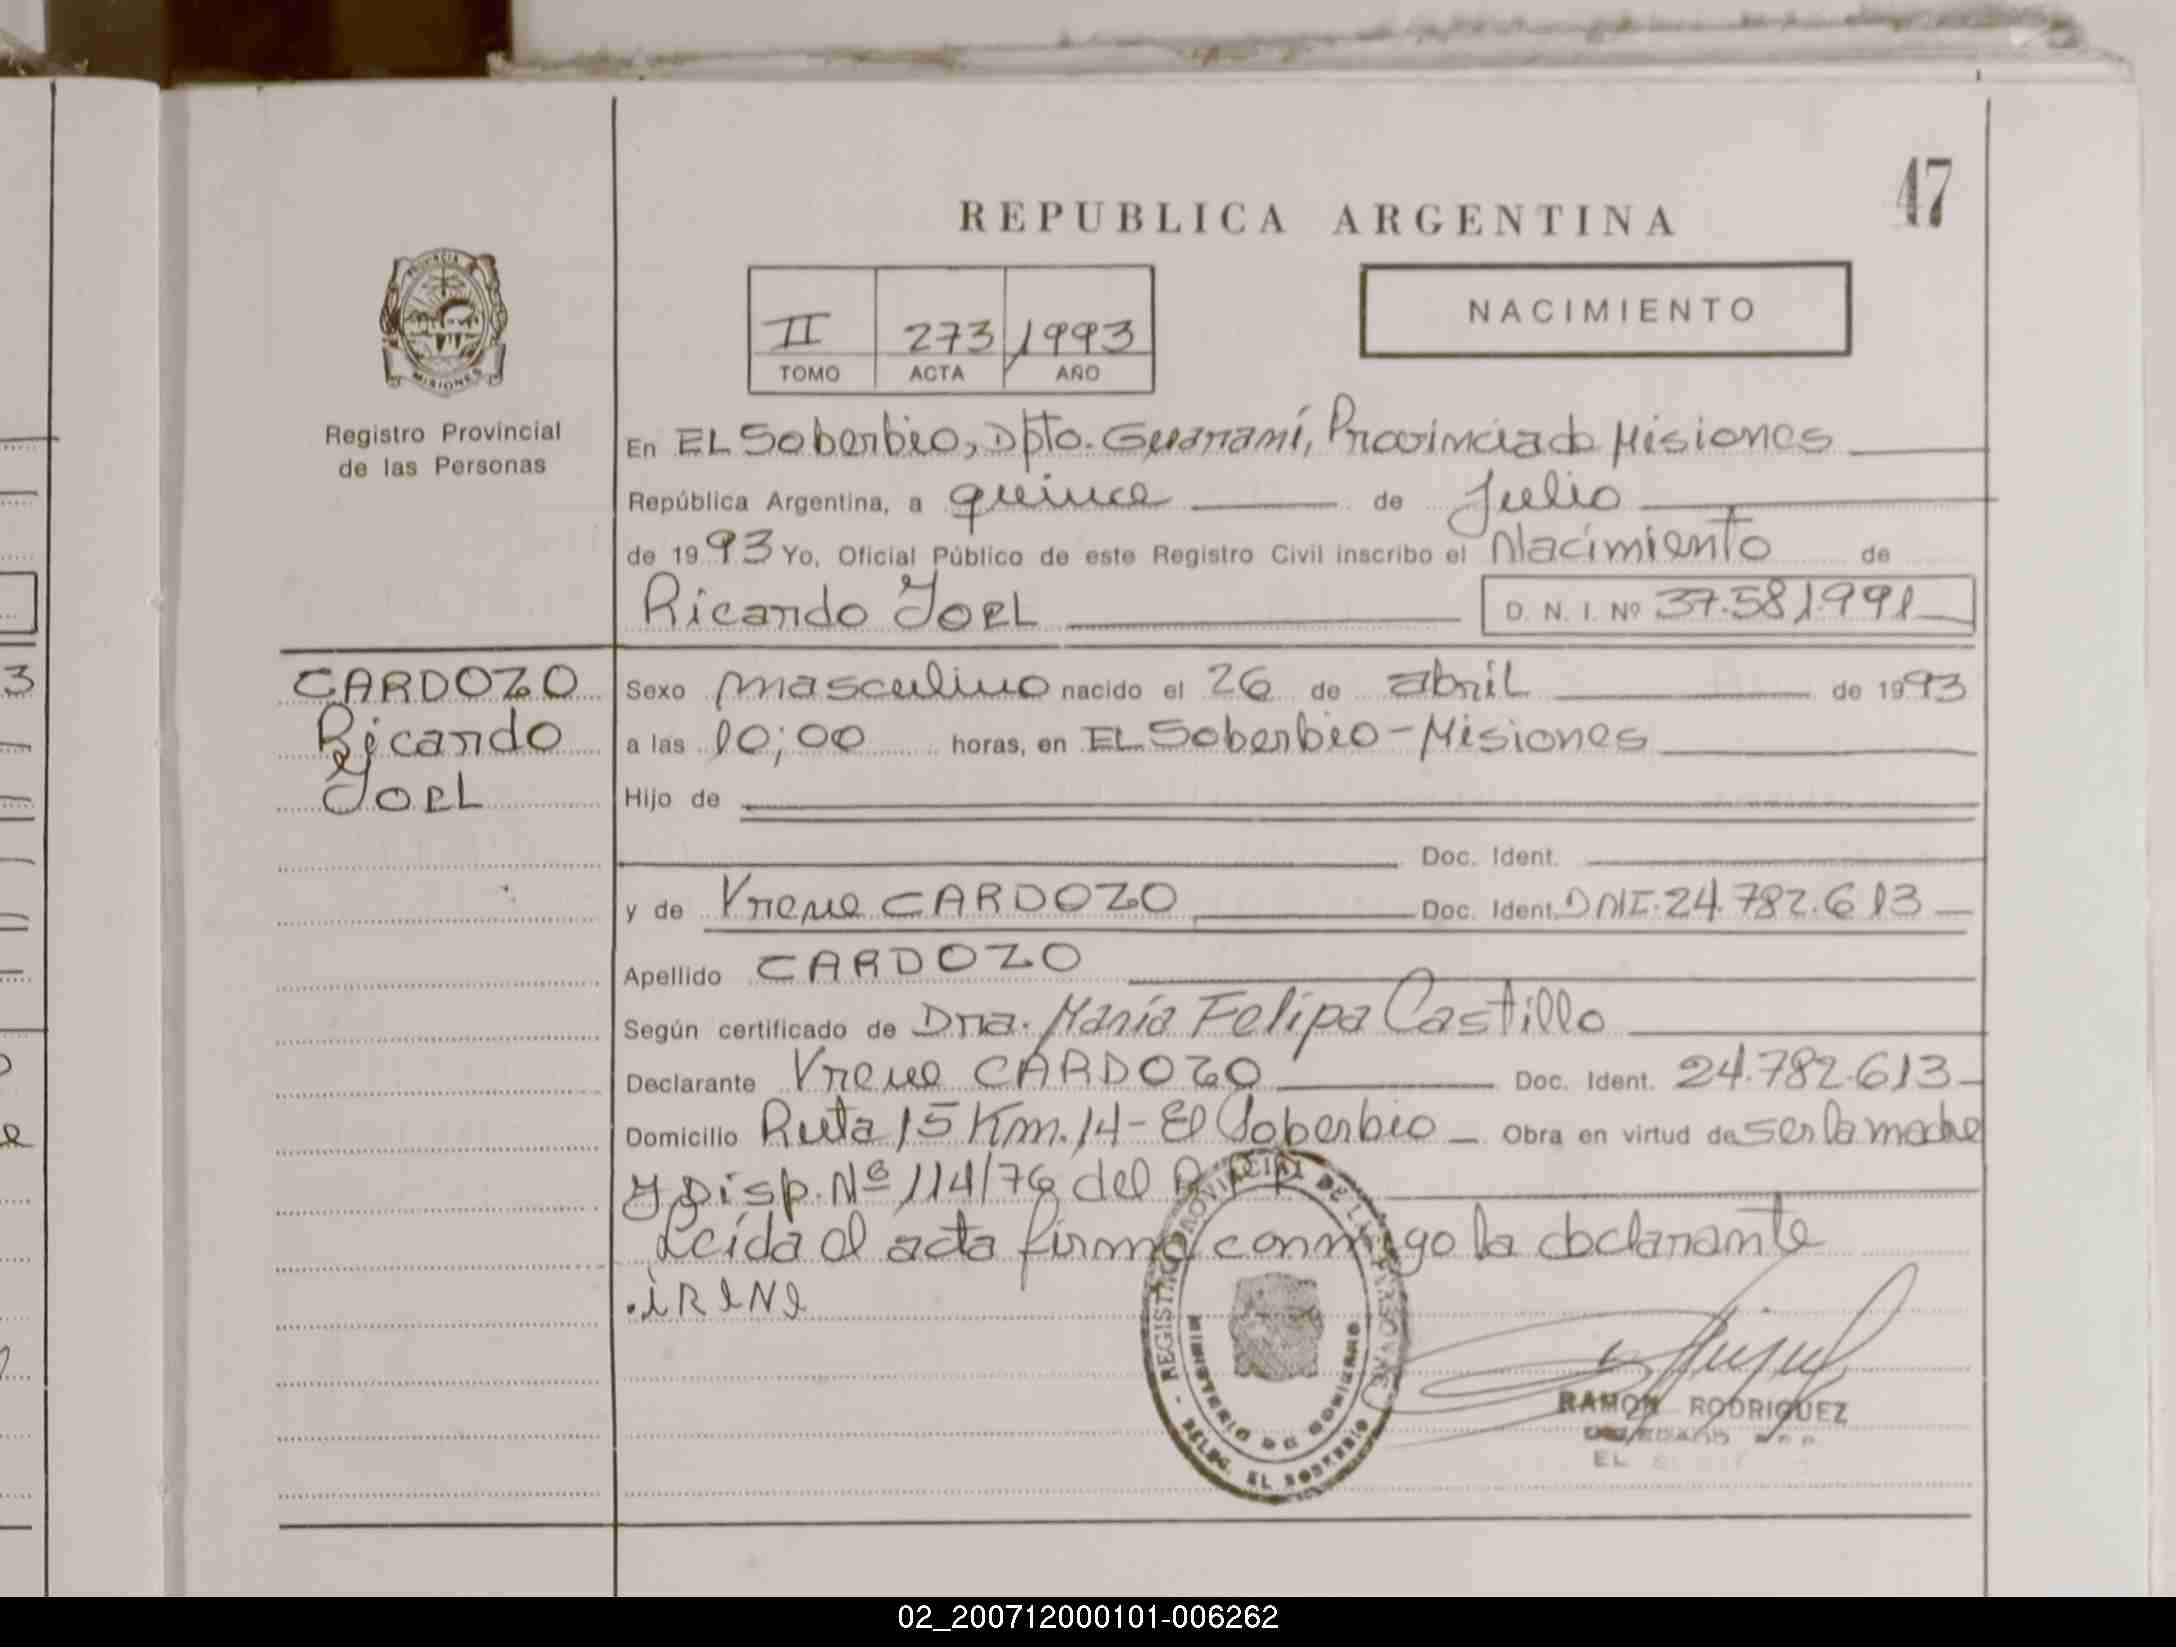 47
REPUBLICA ARGENTINA
NACIMIENTO
II 273 1993
TOMO ACTA AÑO
PROVINCIA
MISIONES
Registro Provincial
de las Personas
En EL Soberbio, Dpto. Guaraní, Provincia de Misiones
República Argentina, a quince de Julio
de 1993 Yo, Oficial Público de este Registro Civil inscribo el Nacimiento de
Ricardo Joel D. N. I. Nº 37.581.991
CARDOZO
Ricardo
Joel
Sexo masculino nacido el 26 de abril de 1993
a las 10;00 horas, en EL Soberbio - Misiones
Hijo de
Doc. Ident.
y de Yrene CARDOZO Doc. Ident. DNI. 24.782.613
Apellido CARDOZO
Según certificado de Dra. María Felipa Castillo
Declarante Yrene CARDOZO Doc. Ident. 24.782.613
Domicilio Ruta 15 Km. 14 - El Soberbio Obra en virtud de ser la madre
y Disp. Nº 114/76 del
Leída el acta firma conmigo la declarante
.iRENE
REGISTRO PROVINCIAL DE LAS PERSONAS
MINISTERIO DE GOBIERNO
DELEG. EL SOBERBIO
RAMON RODRIGUEZ
EL
02_200712000101-006262